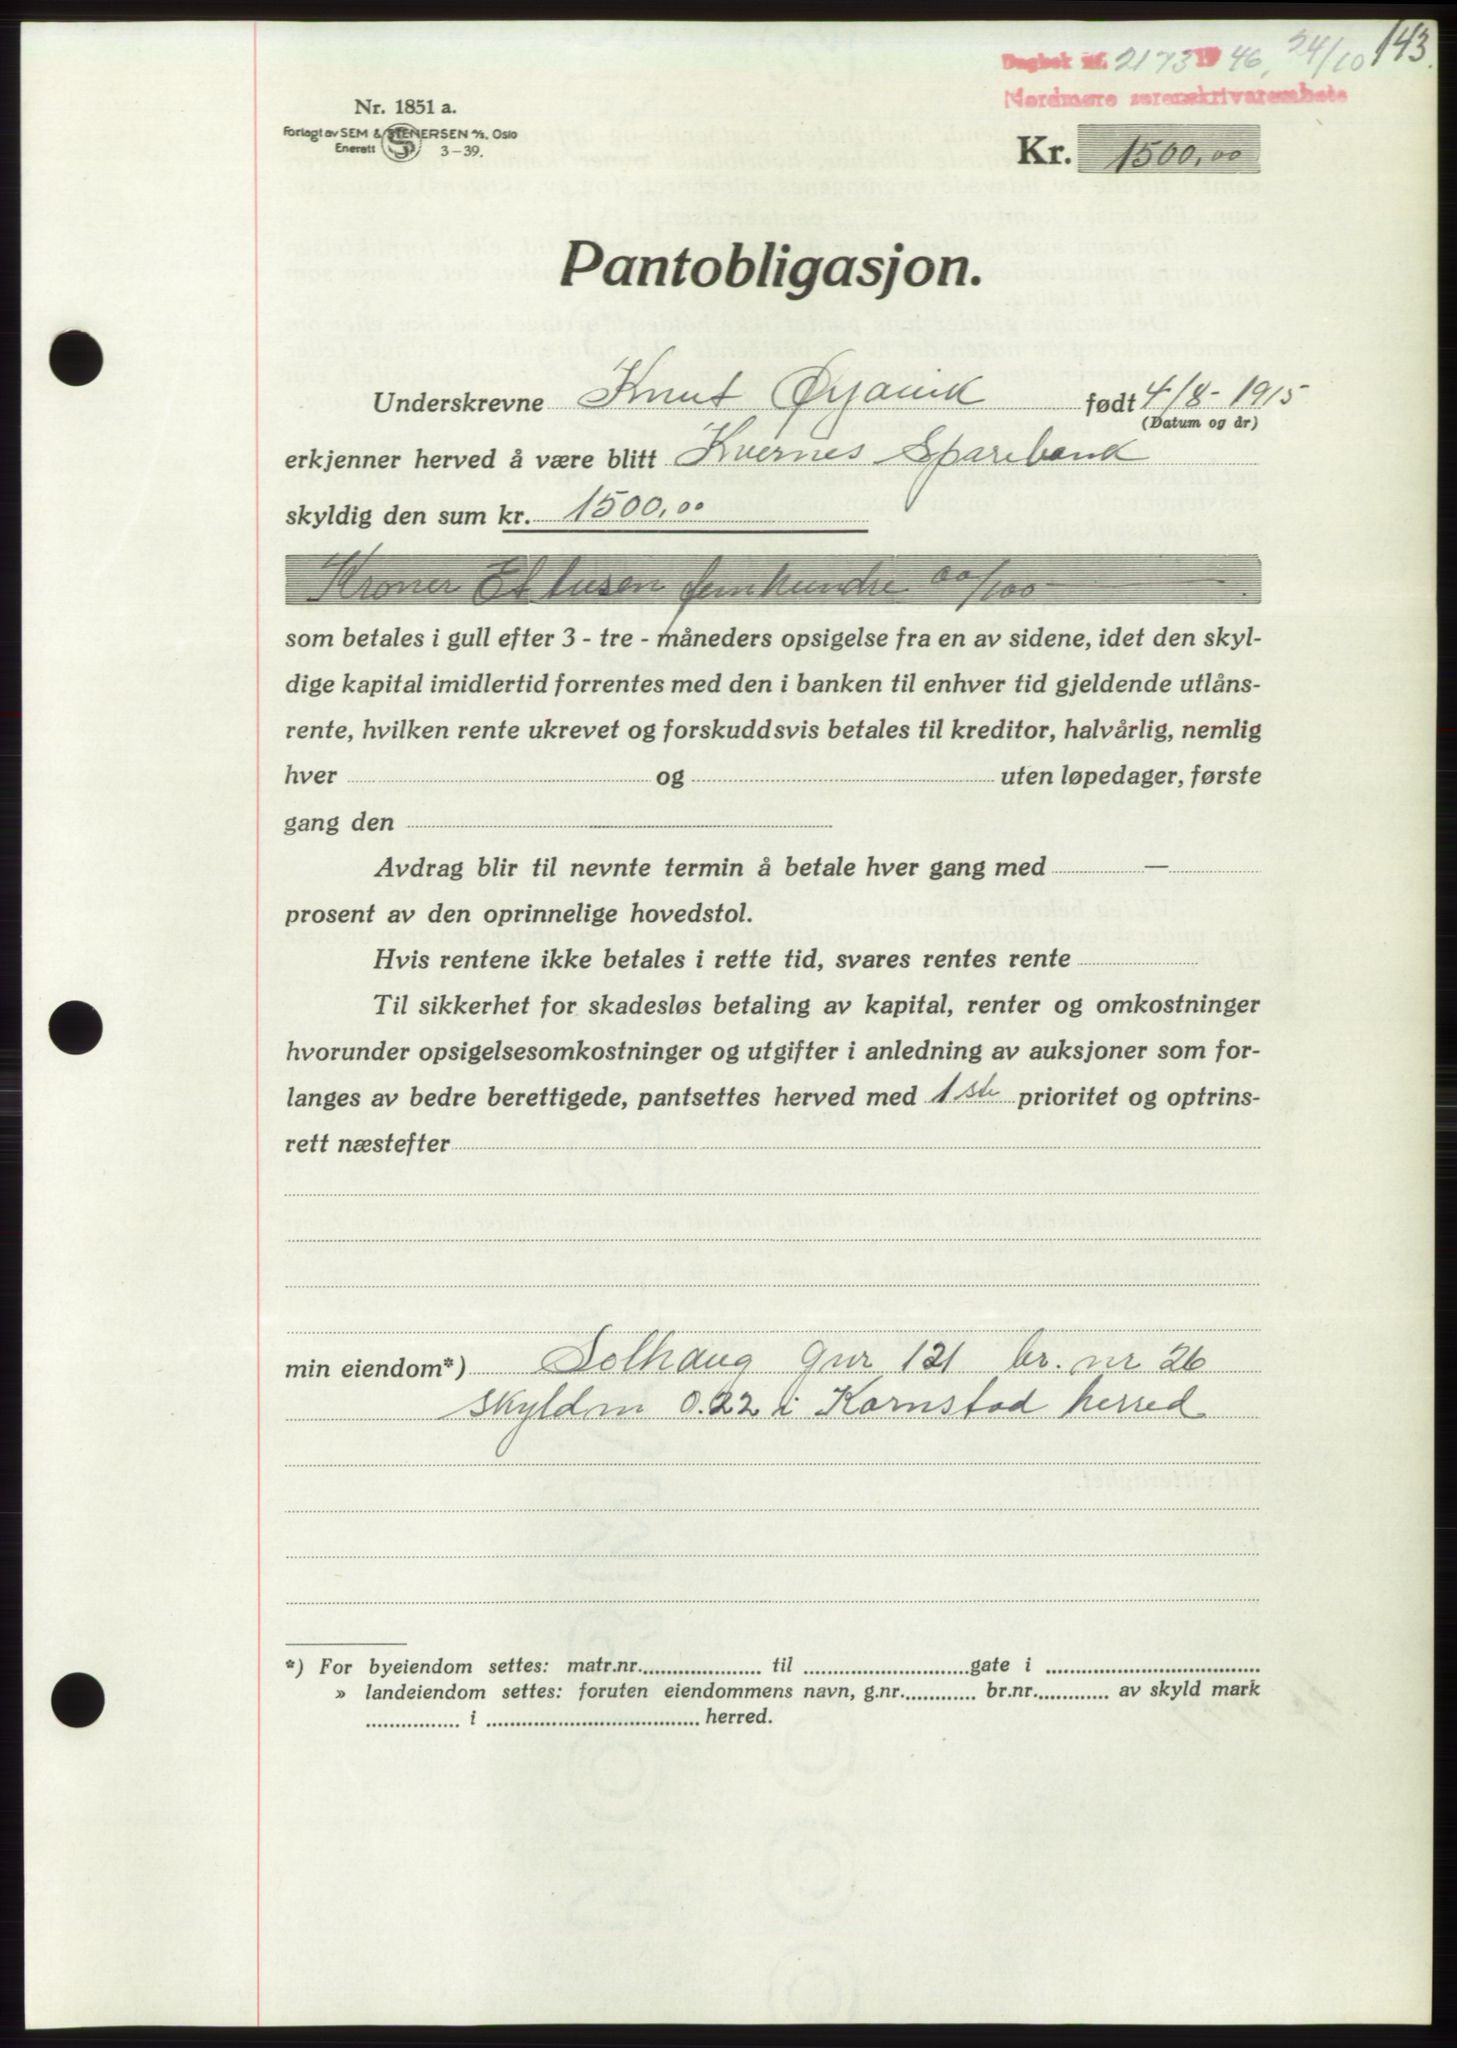 143.
Dagbok nr. 2173 1946, 24/10
Nordmøre sorenskrivarembete
Nr. 1851 a.
Forlagt av SEM & STENERSEN A/S. Oslo
Enerett 3-39.
Kr. 1500,00
Pantobligasjon.
Underskrevne Knut Øyavik født 4/8-1915
(Datum og år)
erkjenner herved å være blitt Kvernes Sparebank
skyldig den sum kr. 1500,00
Kroner Et tusen femhundre 00/100
som betales i gull efter 3 - tre - måneders opsigelse fra en av sidene, idet den skyl-
dige kapital imidlertid forrentes med den i banken til enhver tid gjeldende utlåns-
rente, hvilken rente ukrevet og forskuddsvis betales til kreditor, halvårlig, nemlig
hver og uten løpedager, første
gang den
Avdrag blir til nevnte termin å betale hver gang med —
prosent av den oprinnelige hovedstol.
Hvis rentene ikke betales i rette tid, svares rentes rente
Til sikkerhet for skadesløs betaling av kapital, renter og omkostninger
hvorunder opsigelsesomkostninger og utgifter i anledning av auksjoner som for-
langes av bedre berettigede, pantsettes herved med 1ste prioritet og optrins-
rett næstefter
min eiendom*) Solhaug gnr 121 br. nr 26
skyldm 0.22 i Kornstad herred
*) For byeiendom settes: matr.nr. til gate i
» landeiendom settes: foruten eiendommens navn, g.nr. br.nr. av skyld mark
i herred.